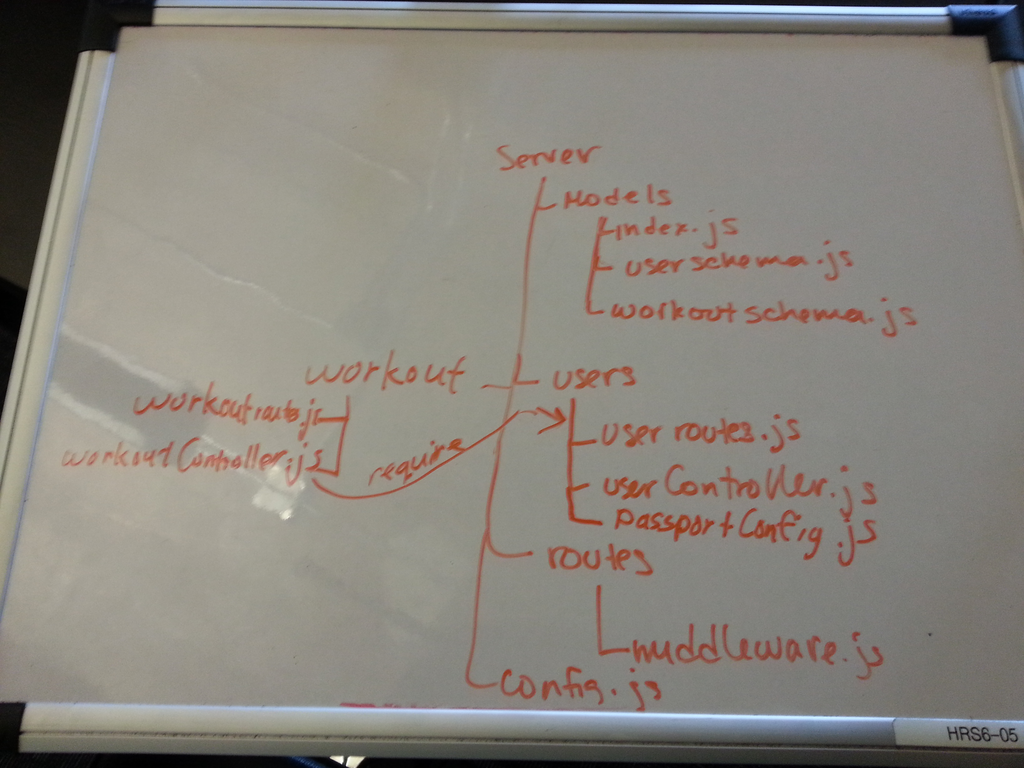 Server
Models
index.js
userschema.js
workoutschema.js
workout
users
workoutroutes.js
workoutController.js
require
user routes.js
userController.js
passportConfig.js
routes
muddleware.js
config.js
HRS6-05